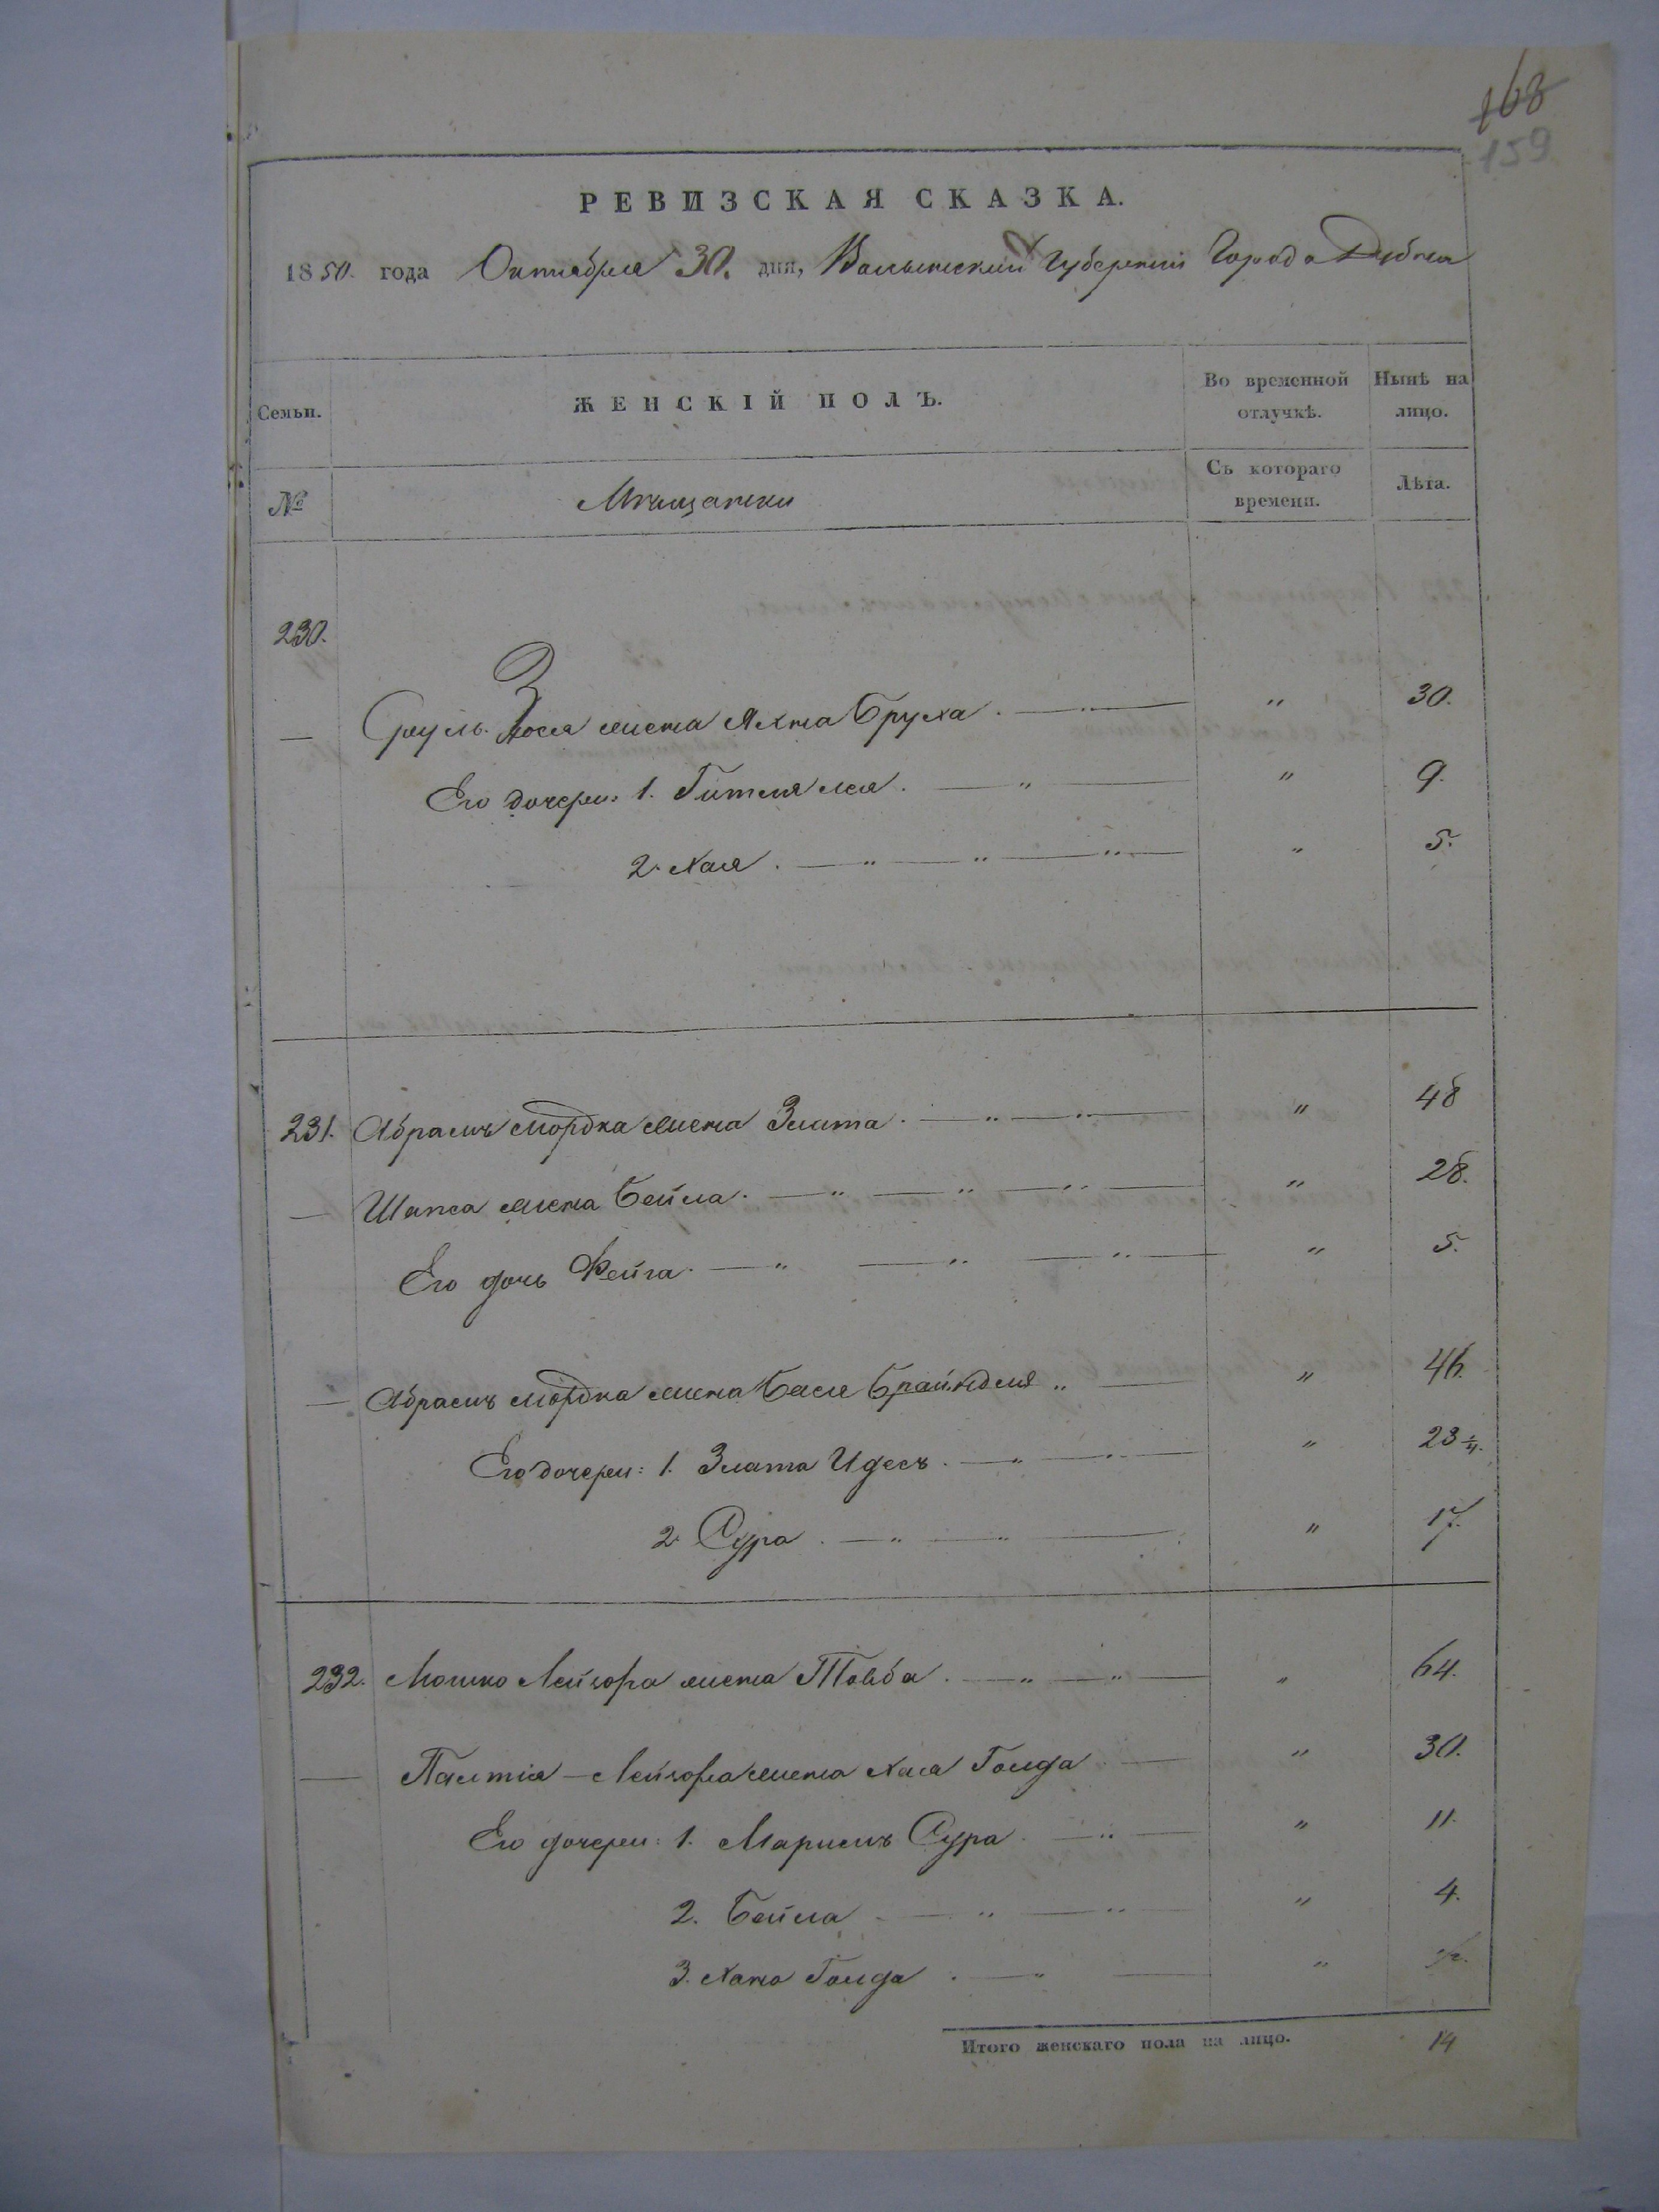 168
159
РЕВИЗСКАЯ СКАЗКА.
1850. года Октября 30. дня, Волынской Губернии Города Дубна
Семьи. ЖЕНСКІЙ ПОЛЪ. Во временной отлучкѣ. Нынѣ на лицо.
№ Мѣщанки Съ котораго времени. Лѣта.
230.
— Сруль Іося жена Яхна Бруха . — " — " 30.
Его дочери: 1. Гитля Лея . — " — " 9.
2. Хая . — " — " — " — " 5.
231. Абрамъ Мордка жена Злата . — " — " — " 48
— Шапса жена Бейла . — " — " — " — " 28.
Его дочь Фейга . — " — " — " — " 5.
— Абрамъ Мордка жена Бася Брайндля " — " 46.
Его дочери: 1. Злата Идесъ . — " — " — " 23
2. Сура . — " — " — " 17.
232. Мошко Лейзора жена Товба . — " — " — " 64.
— Лейзора жена Хая Голда — " 30.
Его дочери: 1. Маріемъ Сура . — " — " 11.
2. Бейла — " — " — " 4.
3. Хана Голда . — " — "
Итого женскаго пола на лицо. 14